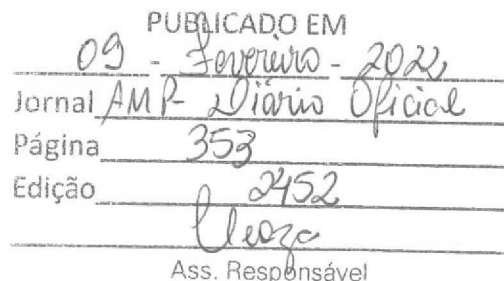 PUBLICADO EM
09 - Fevereiro - 2022
Jornal AMP- Diário Oficial
Página 353
Edição 2452
Ass. Responsável